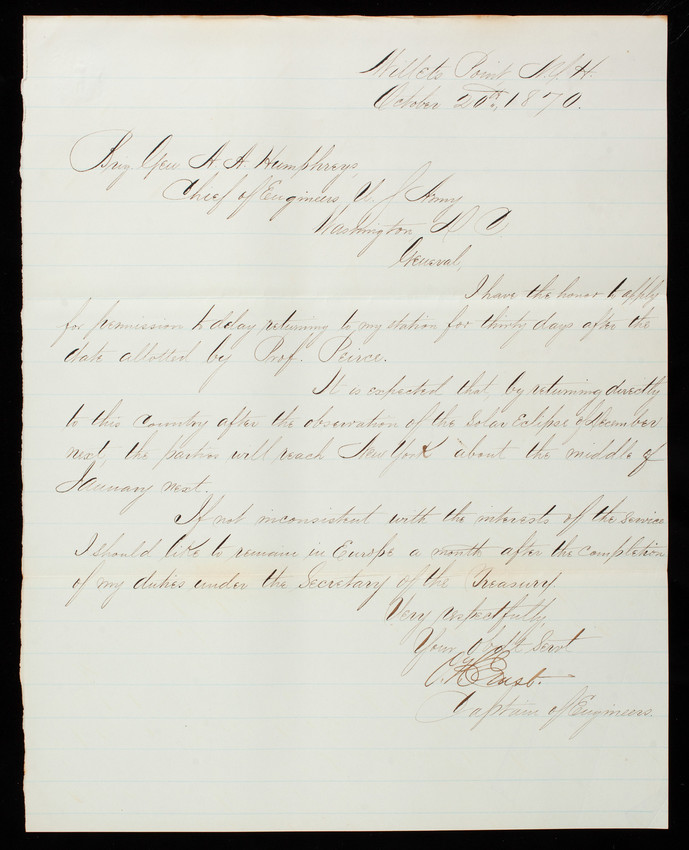 Willets Point, N.Y.H.
October 20th, 1870.
Brig. Gen A. A. Humphreys,
Chief of Engineers, U. S. Army
Washington D C
General,
I have the honor to apply
for permission to delay returning to my station for thirty days after the
date allotted by Prof. Peirce.
It is expected that, by returning directly
to this country after the observation of the Solar Eclipse of December
next, the parties will reach New York about the middle of
January next.
If not inconsistent with the interests of the service
I should like to remain in Europe a month after the completion
of my duties under the Secretary of the Treasury
Very respectfully,
Your Obdt Servt
O. H. Ernst.
Captain of Engineers.